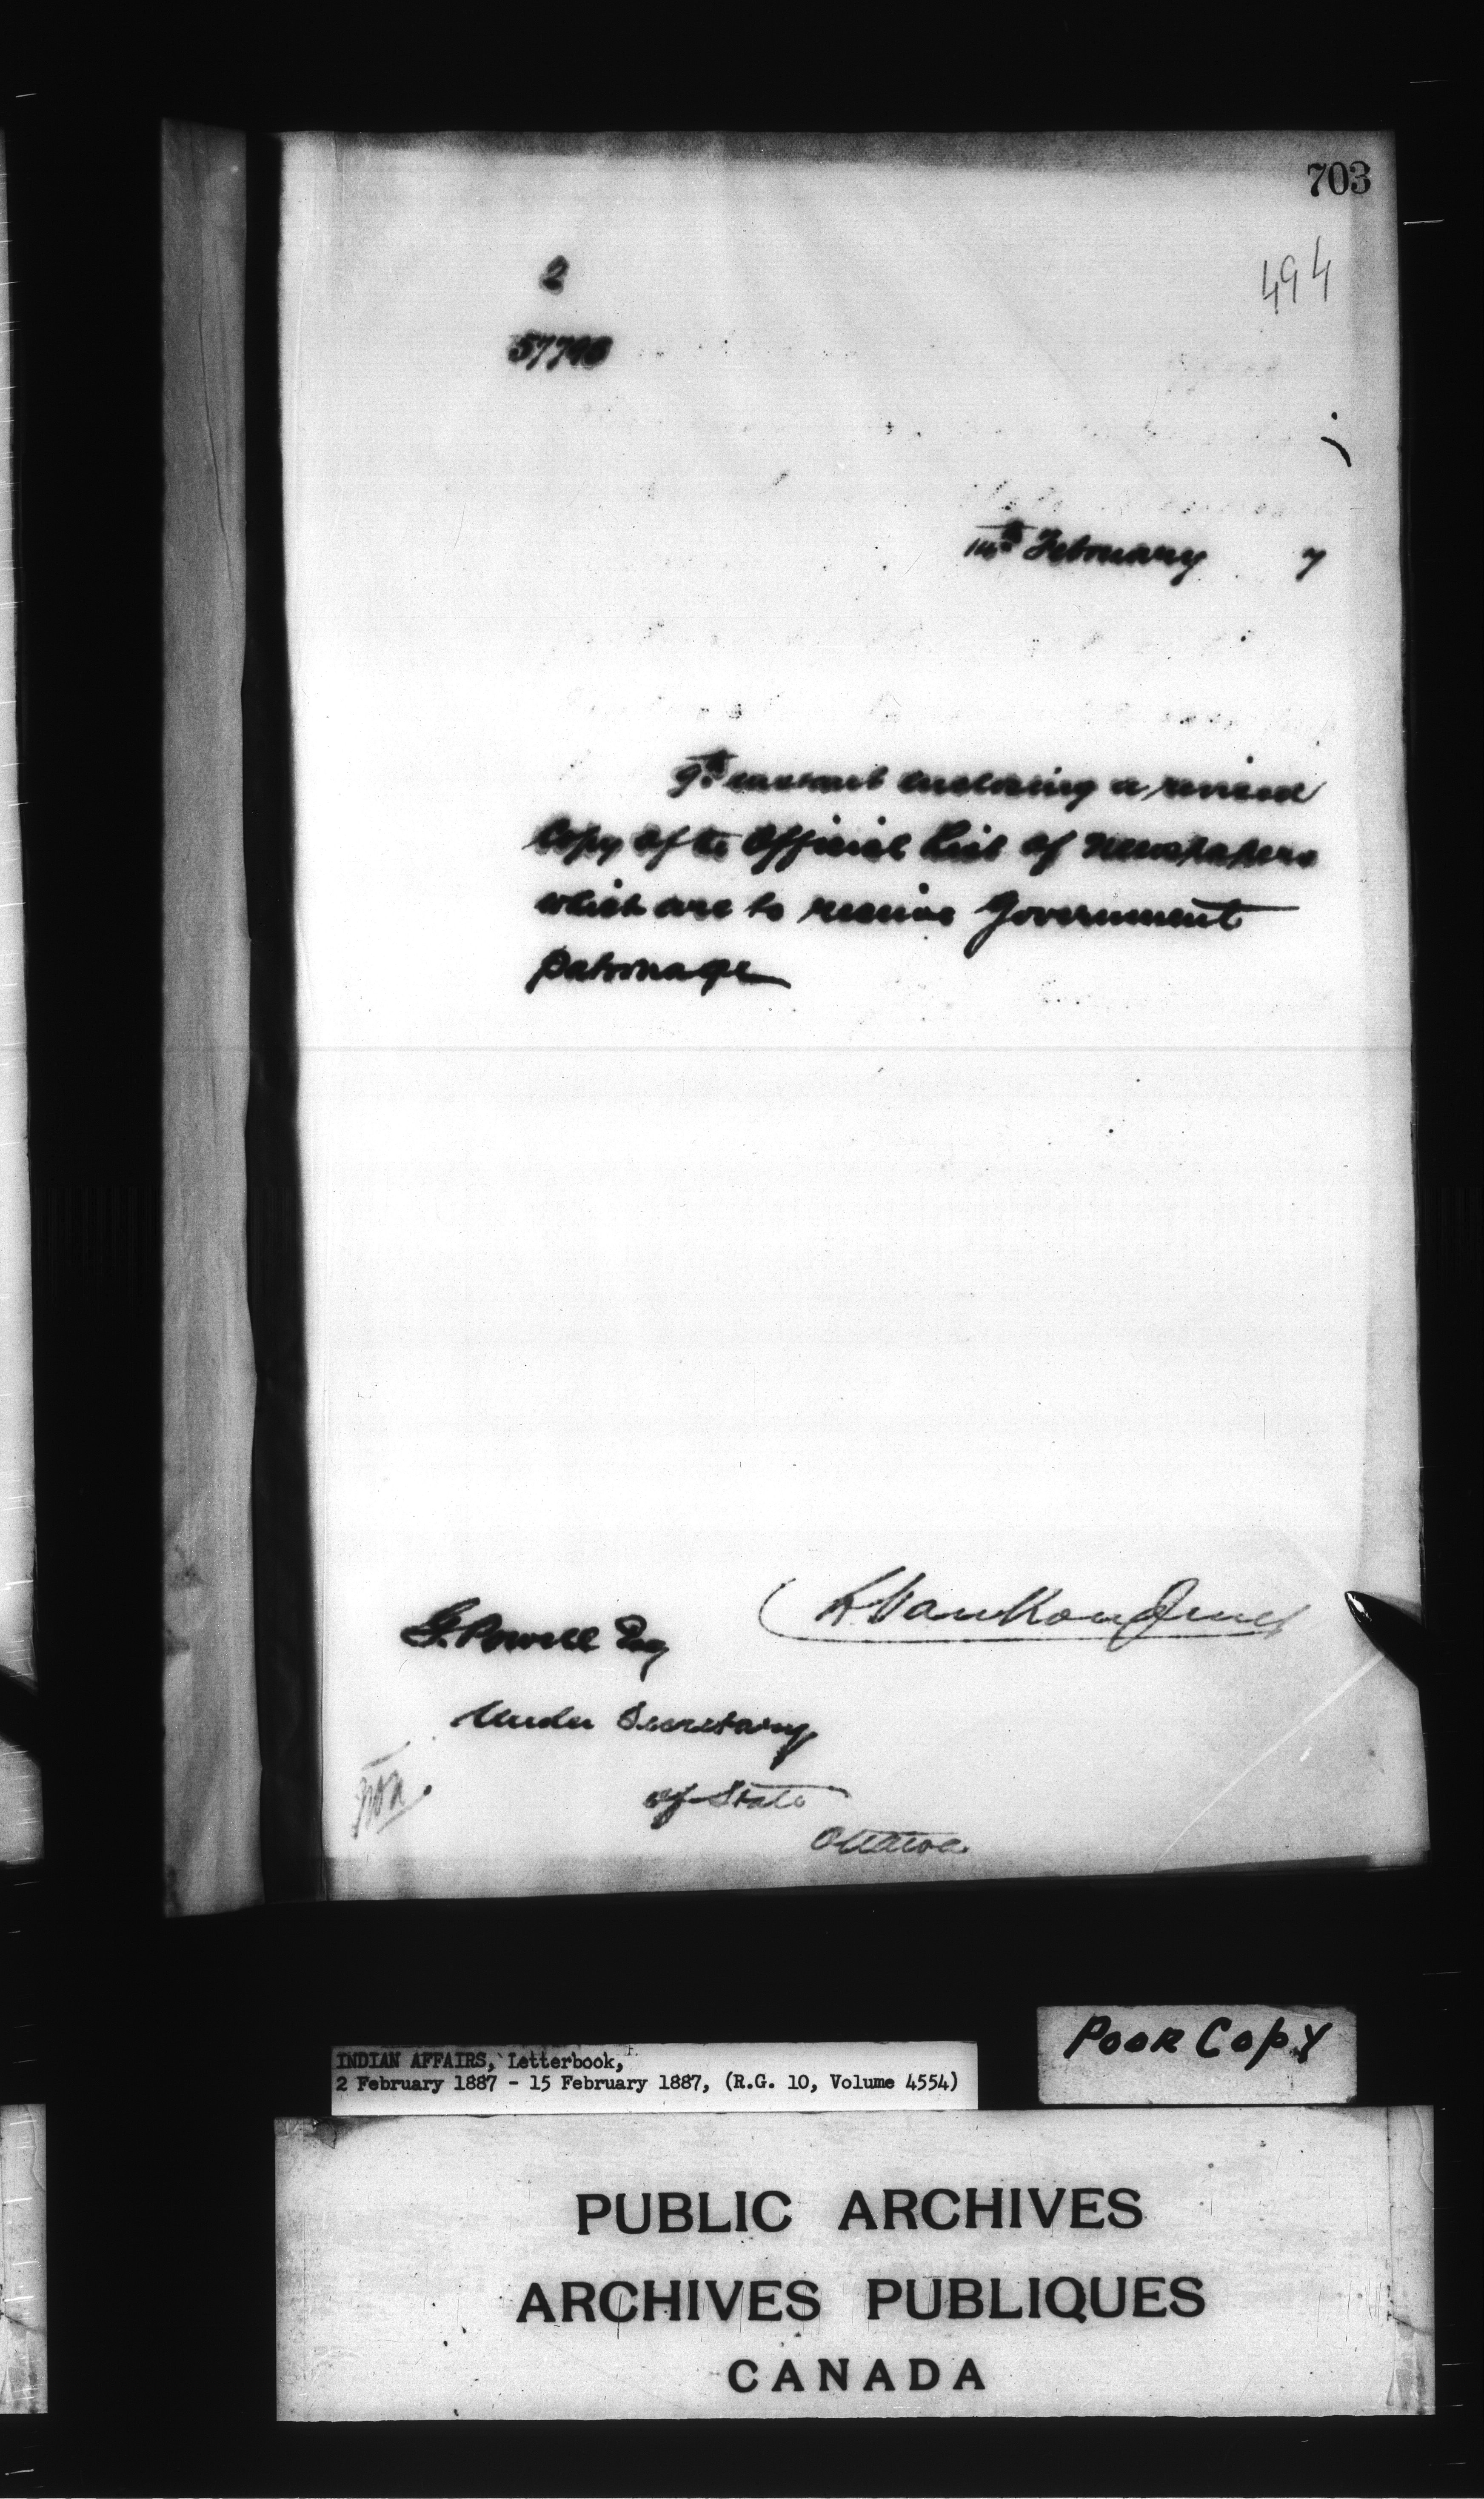 703
494
2
57798
14th February 7
9th instant enclosing a revised
Copy of the Official List of Newspapers
which are to receive Government
patronage
L. VanKoughnet
G. Powell Esq
Under Secretary
of State
Ottawa
INDIAN AFFAIRS, Letterbook,
2 February 1887 - 15 February 1887, (R.G. 10, Volume 4554)
POOR COPY
PUBLIC ARCHIVES
ARCHIVES PUBLIQUES
CANADA